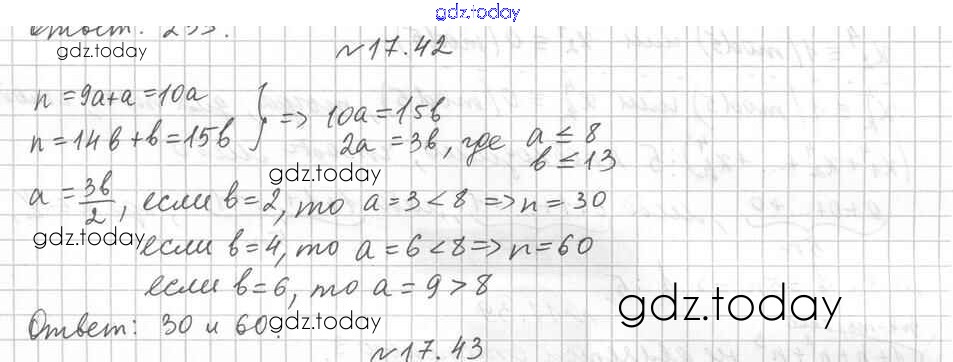 gdz.today
Ответ: 255.
gdz.today
№17.42
n = 9a+a = 10a
n = 14b+b = 15b } => 10a = 15b
2a = 3b, где a ≤ 8
b ≤ 13
gdz.today
a = 3b/2, если b=2, то a = 3 < 8 => n = 30
gdz.today
если b=4, то a = 6 < 8 => n = 60
если b=6, то a = 9 > 8
gdz.today
Ответ: 30 и 60.
gdz.today
№17.43